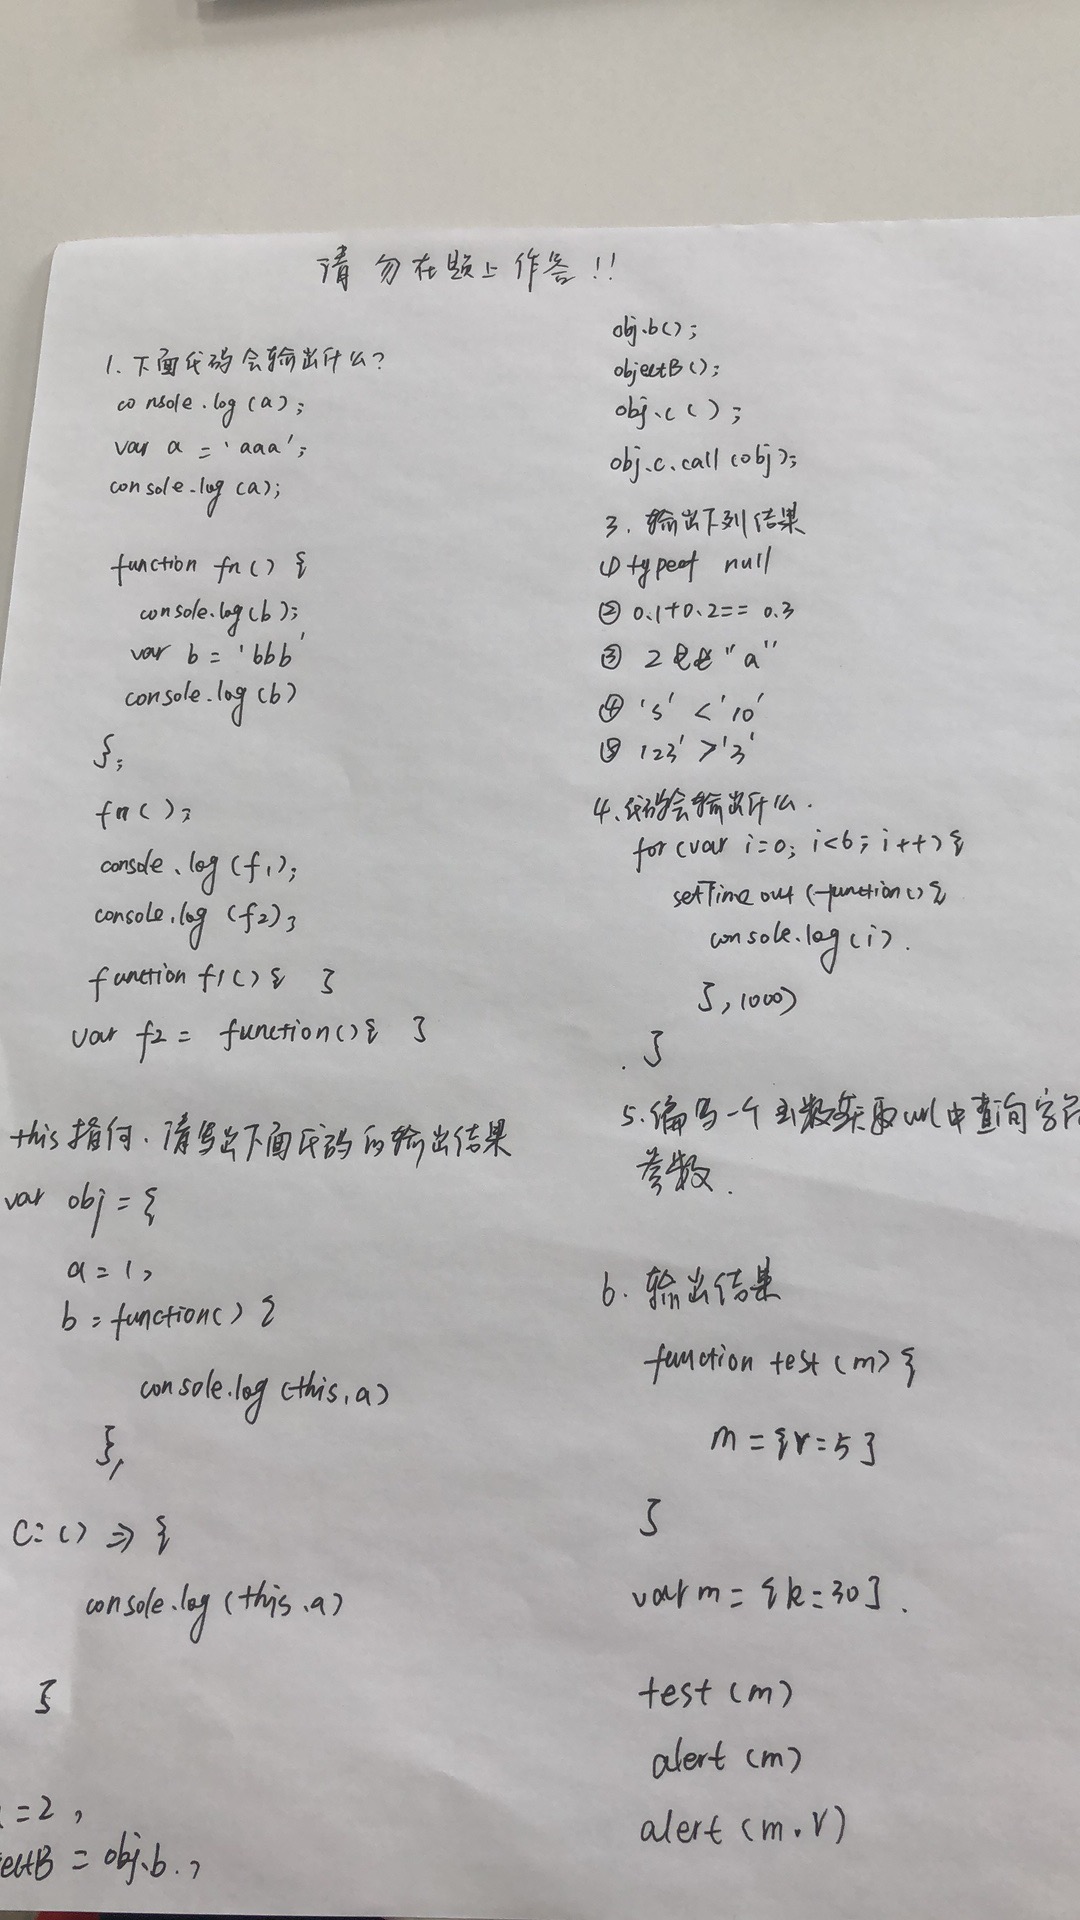 请勿在题上作答!!
1. 下面代码会输出什么?
console.log(a);
var a = 'aaa';
console.log(a);
function fn() {
console.log(b);
var b = 'bbb'
console.log(b)
};
fn();
console.log(f1);
console.log(f2);
function f1() { }
var f2 = function() { }
this指向. 请写出下面代码的输出结果
var obj = {
a = 1,
b = function() {
console.log(this.a)
},
c: () => {
console.log(this.a)
}
= 2,
ectB = obj.b.,
obj.b();
objectB();
obj.c();
obj.c.call(obj);
3. 输出下列结果
① typeof null
② 0.1+0.2== 0.3
③ 2 && "a"
④ '5' < '10'
⑤ 123' > '3'
4. 代码会输出什么.
for(var i=0; i<6; i++){
setTimeout(function(){
console.log(i).
}, 1000)
}
5. 编写一个函数获取url中查询字符
参数.
6. 输出结果
function test(m) {
m = {v=5}
}
var m = {k=30}.
test(m)
alert(m)
alert(m.v)